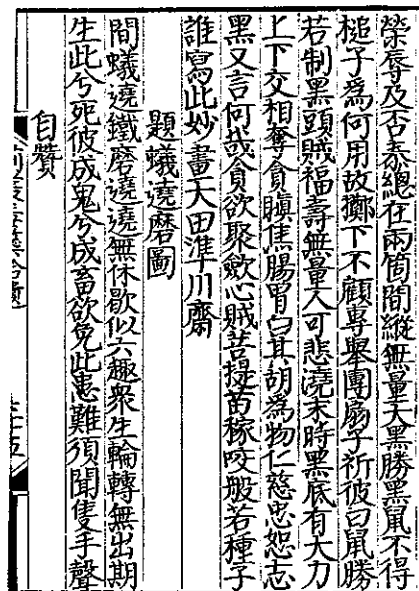 榮辱及否泰總在兩箇間縱無量大黑勝黑鼠不得
槌子為何用故擲下不顧專舉團扇子祈彼白鼠勝
若制黑頭賊福壽無量人可悲澆末時黑底有大力
上下交相奪貪瞋焦腸胃白其胡為物仁慈忠恕志
黑又言何哉貪欲聚斂心賊菩提苗稼咬般若種子
誰寫此妙畫大田準川齋
題蟻遶磨圖
間蟻遶鐵磨遶遶無休歇似六趣衆生輪轉無出期
生此兮死彼成鬼兮成畜欲免此患難須聞隻手聲
自贊